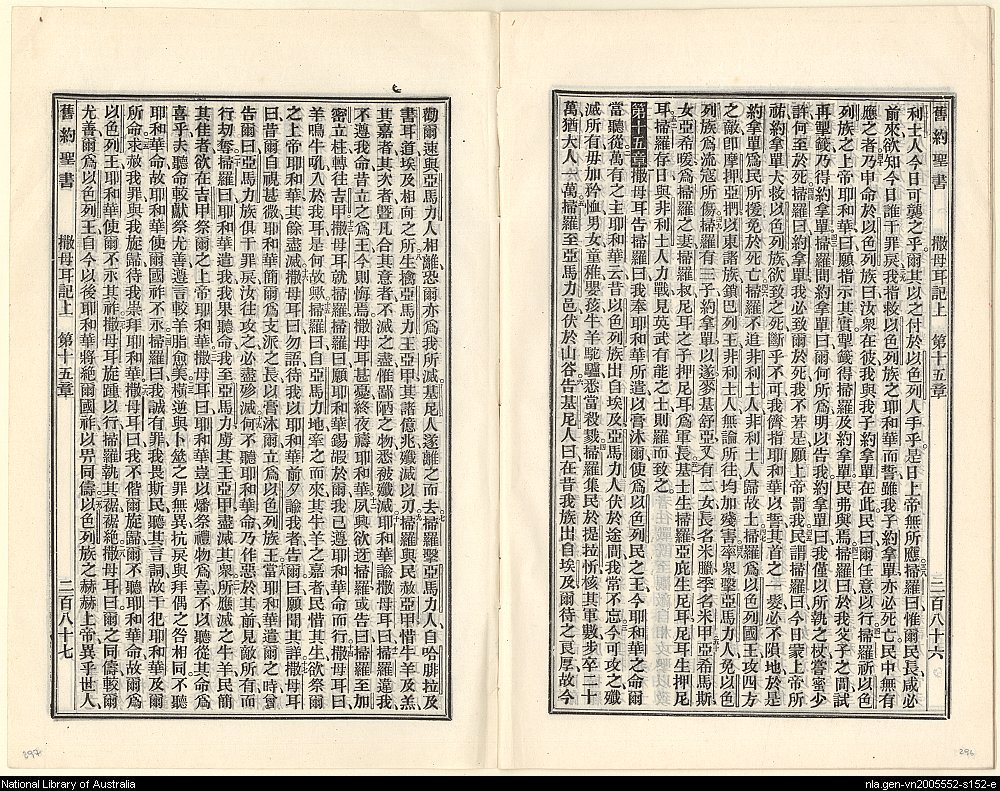 舊約聖書 撒母耳記上 第十五章 二百八十六
利士人今日可襲之乎爾其以之付於以色列人手乎是日上帝無所應掃羅曰惟爾民長咸必
前來欲知今日誰干罪戾我指救以色列族之耶和華而誓雖我子約拿單亦必死亡民中無有
應之者乃申命於以色列族曰汝衆在彼我與我子約拿單在此民曰爾任意以行掃羅祈以色
列族之上帝耶和華曰願指示其實掣籤得掃羅及約拿單民弗與焉掃羅曰於我父子之間試
再掣籤乃得約拿單掃羅問約拿單曰爾何所爲明以告我約拿單曰我僅以所執之杖嘗蜜少
許何至於死掃羅曰約拿單我必致爾於死我不若是願上帝罰我民謂掃羅曰今日蒙上帝所
祐約拿單大救以色列族欲致之死斷乎不可我儕指耶和華以誓其首之一髮必不隕地於是
約拿單爲民所援免於死亡掃羅不追非利士人非利士人歸故土掃羅爲以色列國王攻四方
之敵卽摩押亞捫以東諸族鎖巴列王非利士人無論所往均加殘害率衆擊亞馬力人免以色
列族爲流寇所傷掃羅有三子約拿單以遂麥基舒亞又有二女長名米臘季名米甲亞希馬斯
女亞希暖爲掃羅之妻掃羅叔尼耳之子押尼耳爲軍長基士生掃羅亞庇生尼耳尼耳生押尼
耳掃羅存日與非利士人力戰見英武有能之士則羅而致之
第十五章 撒母耳告掃羅曰我奉耶和華所遣以膏沐爾使爲以色列民之王今耶和華之命爾
當聽從萬有之主耶和華云昔以色列族出自埃及亞馬力人伏於途間我常不忘今可攻之殲
滅所有毋加矜恤男女童稚嬰孩牛羊駝驢悉當殺戮掃羅集民於提拉忻核其軍數步卒二十
萬猶大人一萬掃羅至亞馬力邑伏於山谷告基尼人曰在昔我族出自埃及爾待之良厚故今
勸爾速與亞馬力人相離恐爾亦爲我所滅基尼人遂離之而去掃羅擊亞馬力人自哈腓拉及
書耳道埃及相向之所生擒亞馬力王亞甲其諸億兆殲滅以刃掃羅與民赦亞甲惜牛羊及羔
其嘉者其次者曁凡合其意者不滅之盡惟鄙陋之物悉被殲滅耶和華諭撒母耳曰掃羅違我
不遵我命昔立之爲王今則悔焉撒母耳甚憂終夜禱耶和華夙興欲迓掃羅或告曰掃羅至加
密立柱轉往吉甲撒母耳就掃羅掃羅曰願耶和華錫嘏於爾我已遵耶和華命而行撒母耳曰
羊鳴牛吼入於我耳是何故歟掃羅曰自亞馬力地牽之而來其牛羊之嘉者民惜其生欲祭爾
之上帝耶和華其餘盡滅撒母耳曰勿語待我以耶和華前夕諭我者告爾曰願聞其詳撒母耳
曰昔爾自視甚微耶和華簡爾爲支派之長以膏沐爾立爲以色列族王當耶和華遣爾之時曾
告爾曰亞馬力族俱干罪戾汝往攻之必盡殄滅何不聽耶和華命乃作惡於其前見敵所有而
行刧奪掃羅曰耶和華遣我我果聽命我至亞馬力虜其王亞甲盡滅其衆所應滅之牛羊民簡
其佳者欲在吉甲祭爾之上帝耶和華撒母耳曰耶和華豈以燔祭禮物爲喜不以聽從其命爲
喜乎夫聽命較獻祭尤善遵言較羊脂愈美橫逆與卜筮之罪無異抗戾與拜偶之咎相同不聽
耶和華命故耶和華使爾國祚不永掃羅曰我誠有罪我畏斯民聽其言詞故干犯耶和華及爾
所命求赦我罪與我旋歸待我崇拜耶和華撒母耳曰我不偕爾旋歸爾不聽耶和華命故爾爲
以色列王耶和華使爾不永其祚撒母耳旋踵以行掃羅執其裾裾絕撒母耳曰爾之同儔較爾
尤善爾爲以色列王自今以後耶和華將絕爾國祚以畀同儔以色列族之赫赫上帝異乎世人
舊約聖書 撒母耳記上 第十五章 二百八十七
297
296
National Library of Australia
nla.gen-vn2005552-s152-e